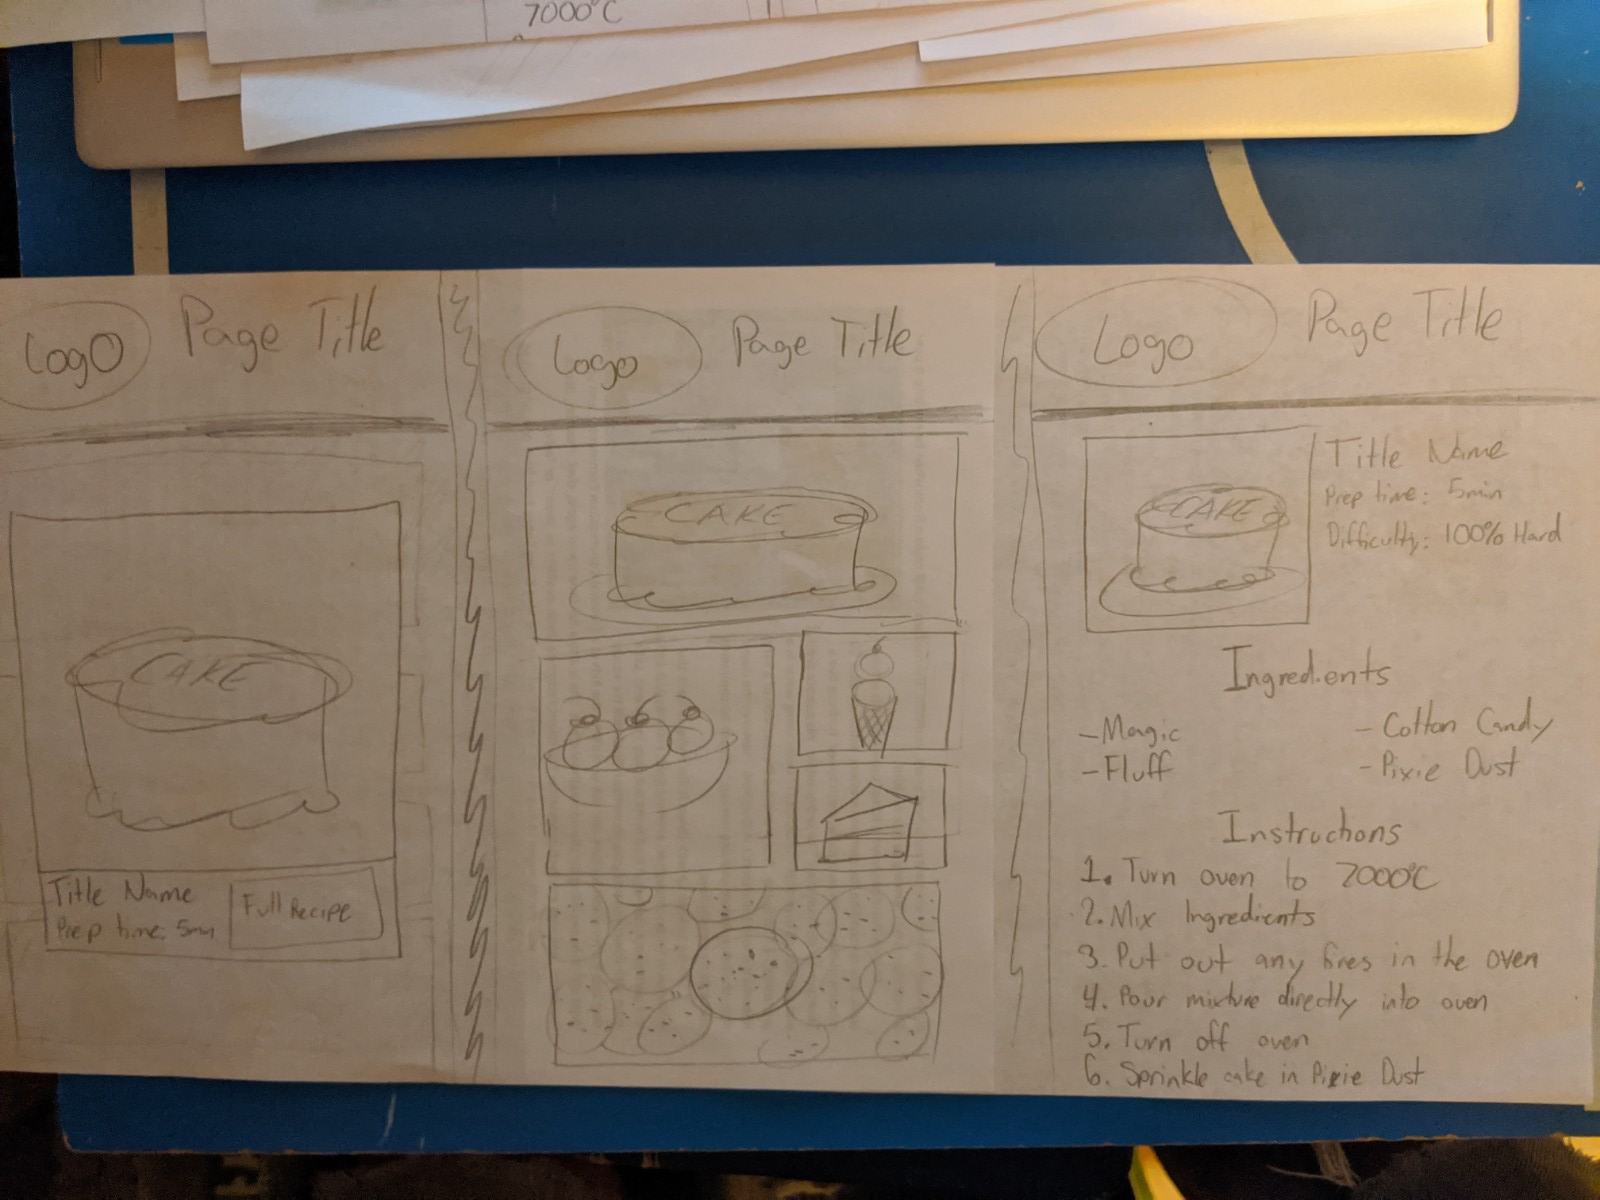 7000°C
Logo
Page Title
CAKE
Title Name
Prep time: 5min
Full Recipe
Logo
Page Title
CAKE
Logo
Page Title
CAKE
Title Name
Prep time: 5min
Difficulty: 100% Hard
Ingredients
-Magic
-Cotton Candy
-Fluff
-Pixie Dust
Instructions
1. Turn oven to 7000°C
2. Mix Ingredients
3. Put out any fires in the oven
4. Pour mixture directly into oven
5. Turn off oven
6. Sprinkle cake in Pixie Dust